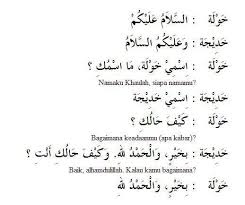 خَوْلَة : السَّلاَمُ عَلَيْكُمْ
خَدِيْجَة : وَعَلَيْكُمُ السَّلاَمُ
خَوْلَة : اِسْمِيْ خَوْلَة، مَا اسْمُكِ ؟
Namaku Khaulah, siapa namamu?
خَدِيْجَة : اِسْمِيْ خَدِيْجَة
خَوْلَة : كَيْفَ حَالُكِ ؟
Bagaimana keadaanmu (apa kabar)?
خَدِيْجَة : بِخَيْرٍ، وَالْحَمْدُ لِلّٰهِ. وَكَيْفَ حَالُكِ أَنْتِ ؟
Baik, alhamdulillah. Kalau kamu bagaimana?
خَوْلَة : بِخَيْرٍ، وَالْحَمْدُ لِلّٰهِ